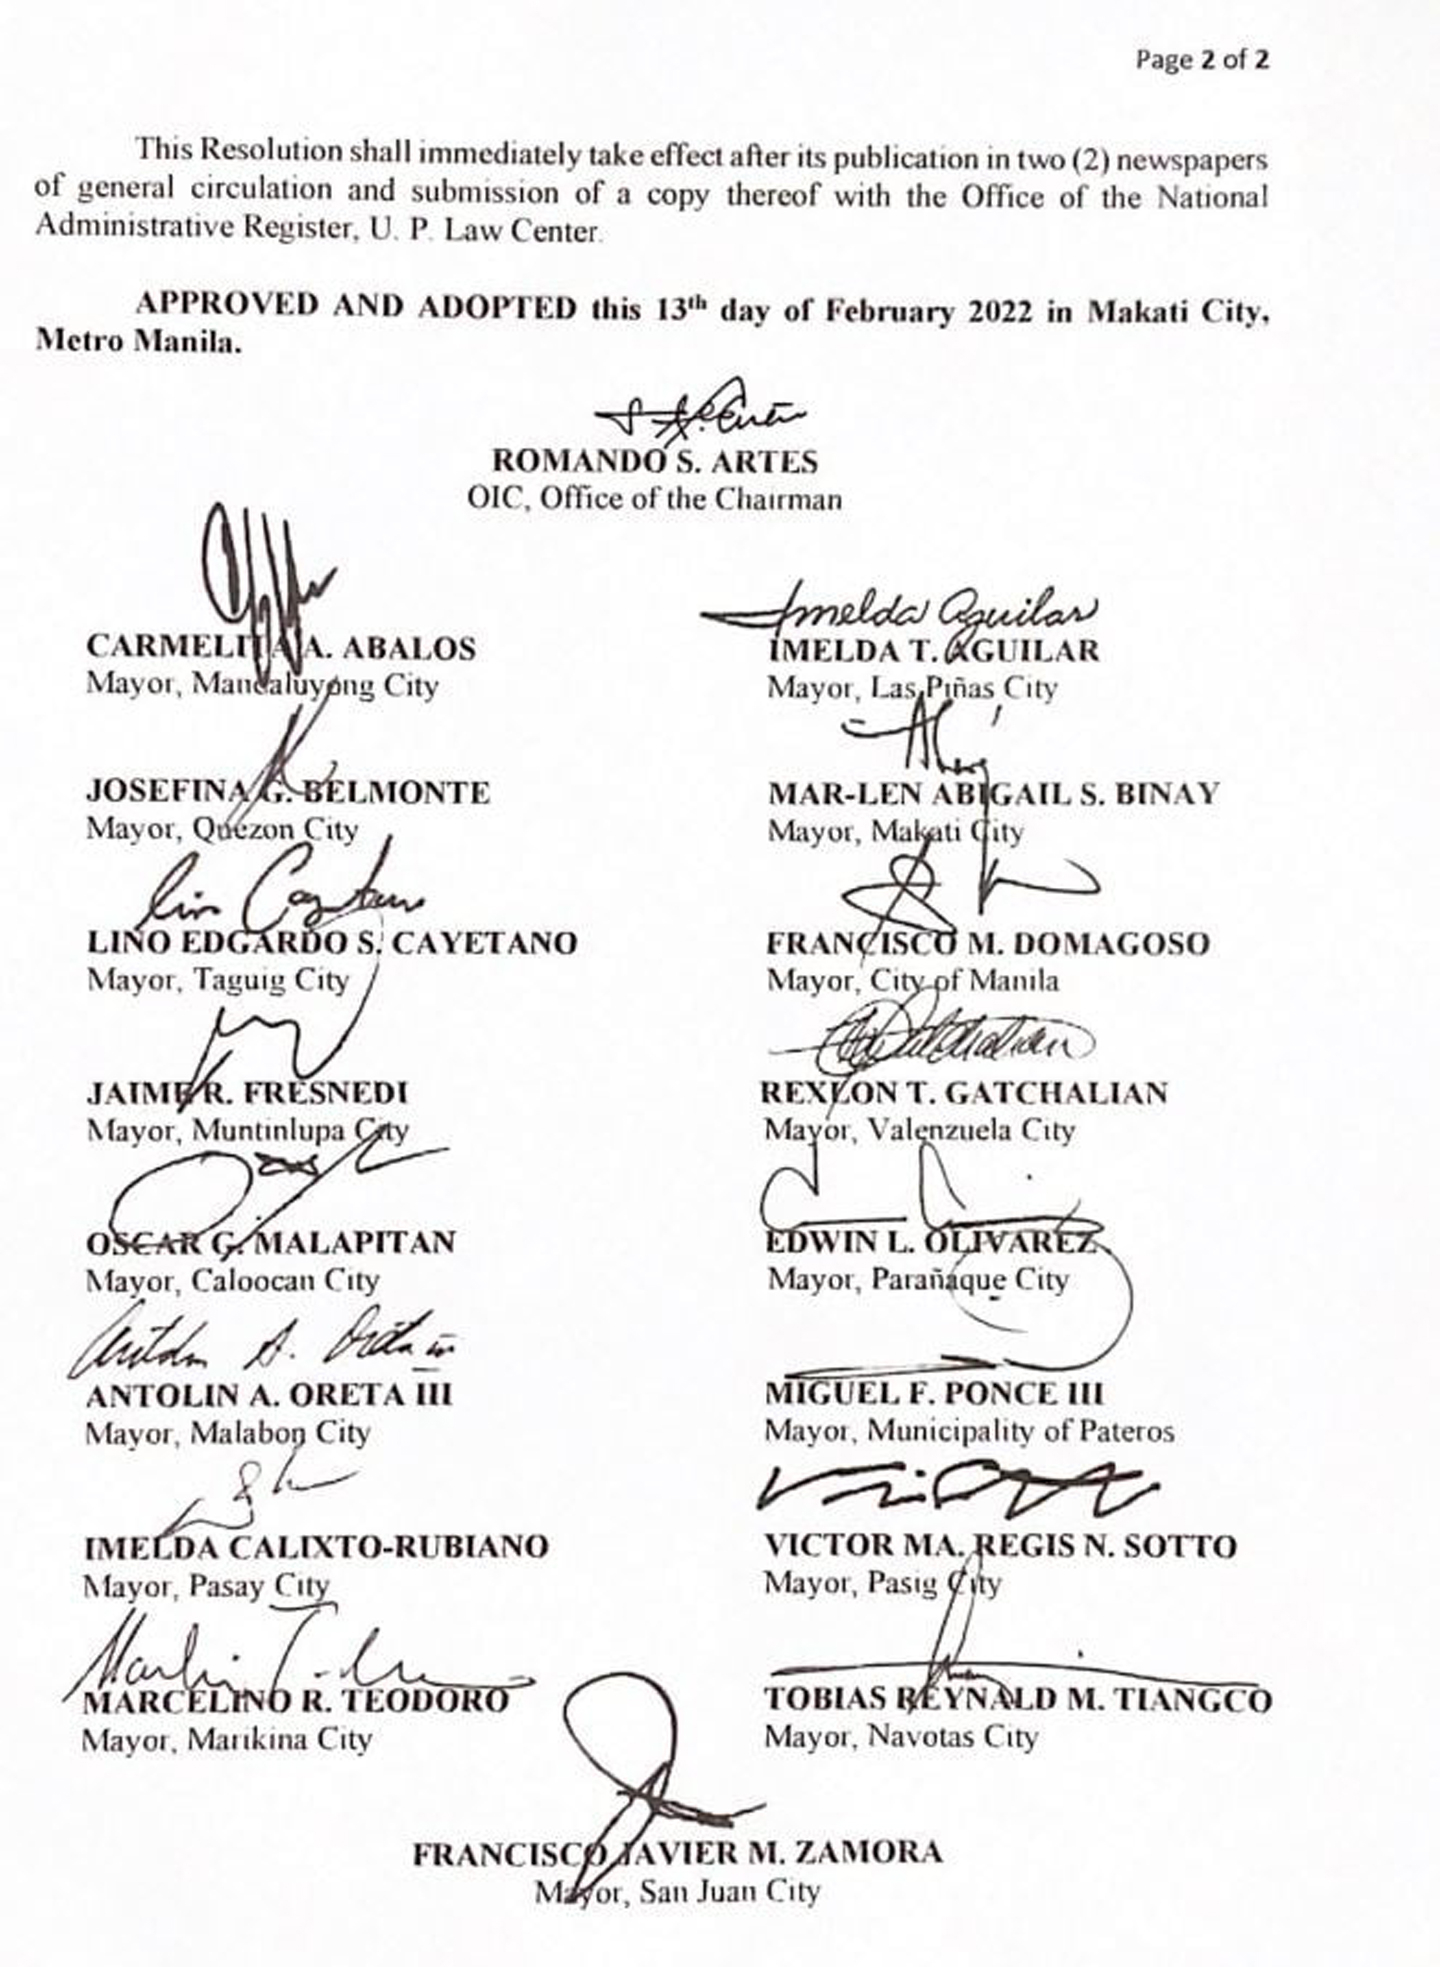 Page 2 of 2
This Resolution shall immediately take effect after its publication in two (2) newspapers
of general circulation and submission of a copy thereof with the Office of the National
Administrative Register, U. P. Law Center.
APPROVED AND ADOPTED this 13th day of February 2022 in Makati City,
Metro Manila.
ROMANDO S. ARTES
OIC, Office of the Chairman
CARMELITA A. ABALOS
Mayor, Mandaluyong City
Imelda Aguilar
IMELDA T. AGUILAR
Mayor, Las Piñas City
JOSEFINA G. BELMONTE
Mayor, Quezon City
MAR-LEN ABIGAIL S. BINAY
Mayor, Makati City
Lino Cayetano
LINO EDGARDO S. CAYETANO
Mayor, Taguig City
FRANCISCO M. DOMAGOSO
Mayor, City of Manila
JAIME R. FRESNEDI
Mayor, Muntinlupa City
REXLON T. GATCHALIAN
Mayor, Valenzuela City
OSCAR G. MALAPITAN
Mayor, Caloocan City
EDWIN L. OLIVAREZ
Mayor, Parañaque City
ANTOLIN A. ORETA III
Mayor, Malabon City
MIGUEL F. PONCE III
Mayor, Municipality of Pateros
IMELDA CALIXTO-RUBIANO
Mayor, Pasay City
VICTOR MA. REGIS N. SOTTO
Mayor, Pasig City
MARCELINO R. TEODORO
Mayor, Marikina City
TOBIAS REYNALD M. TIANGCO
Mayor, Navotas City
FRANCISCO JAVIER M. ZAMORA
Mayor, San Juan City